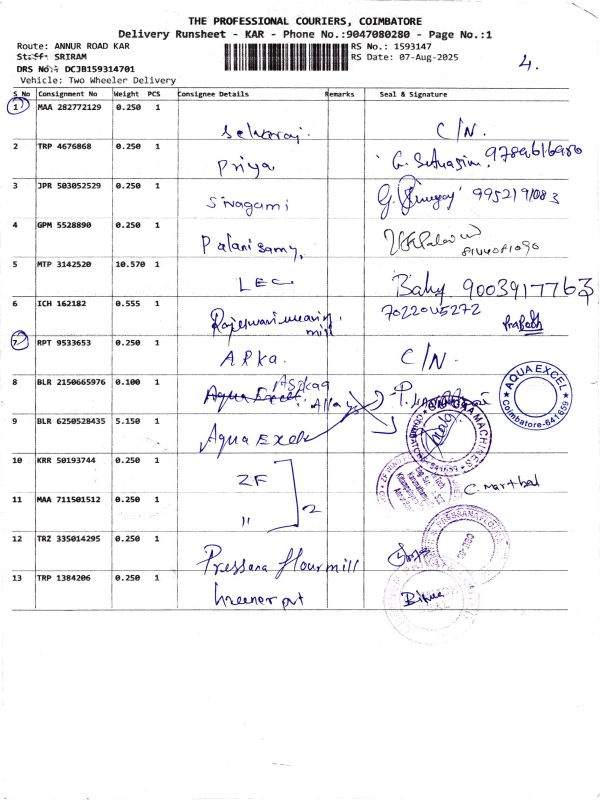 THE PROFESSIONAL COURIERS, COIMBATORE
Delivery Runsheet - KAR - Phone No.:9047080280 - Page No.:1
Route: ANNUR ROAD KAR
RS No.: 1593147
Staff: SRIRAM
RS Date: 07-Aug-2025
4.
DRS No.: DCJB159314701
Vehicle: Two Wheeler Delivery
S No Consignment No Weight PCS Consignee Details Remarks Seal & Signature
1 MAA 282772129 0.250 1
Selvaraj. C/N.
2 TRP 4676868 0.250 1
Priya
3 JPR 503052529 0.250 1
Sivagami 9952191083
4 GPM 5528890 0.250 1
Palanisamy,
5 MTP 3142520 10.570 1
LEC Baby 9003917763
6 ICH 162182 0.555 1 7022045272
Rajeswari weaving mill Prakash
7 RPT 9533653 0.250 1
ARKA. C/N.
8 BLR 2150665976 0.100 1
Aqua Excel. Alloys
AQUA EXCEL
Coimbatore-641659
9 BLR 6250528435 5.150 1
Aqua Excel
MACHINES
641659
10 KRR 50193744 0.250 1
ZF
2
11 MAA 711501512 0.250 1
"
12 TRZ 335014295 0.250 1
Pressana flourmill
13 TRP 1384206 0.250 1
Greener pvt